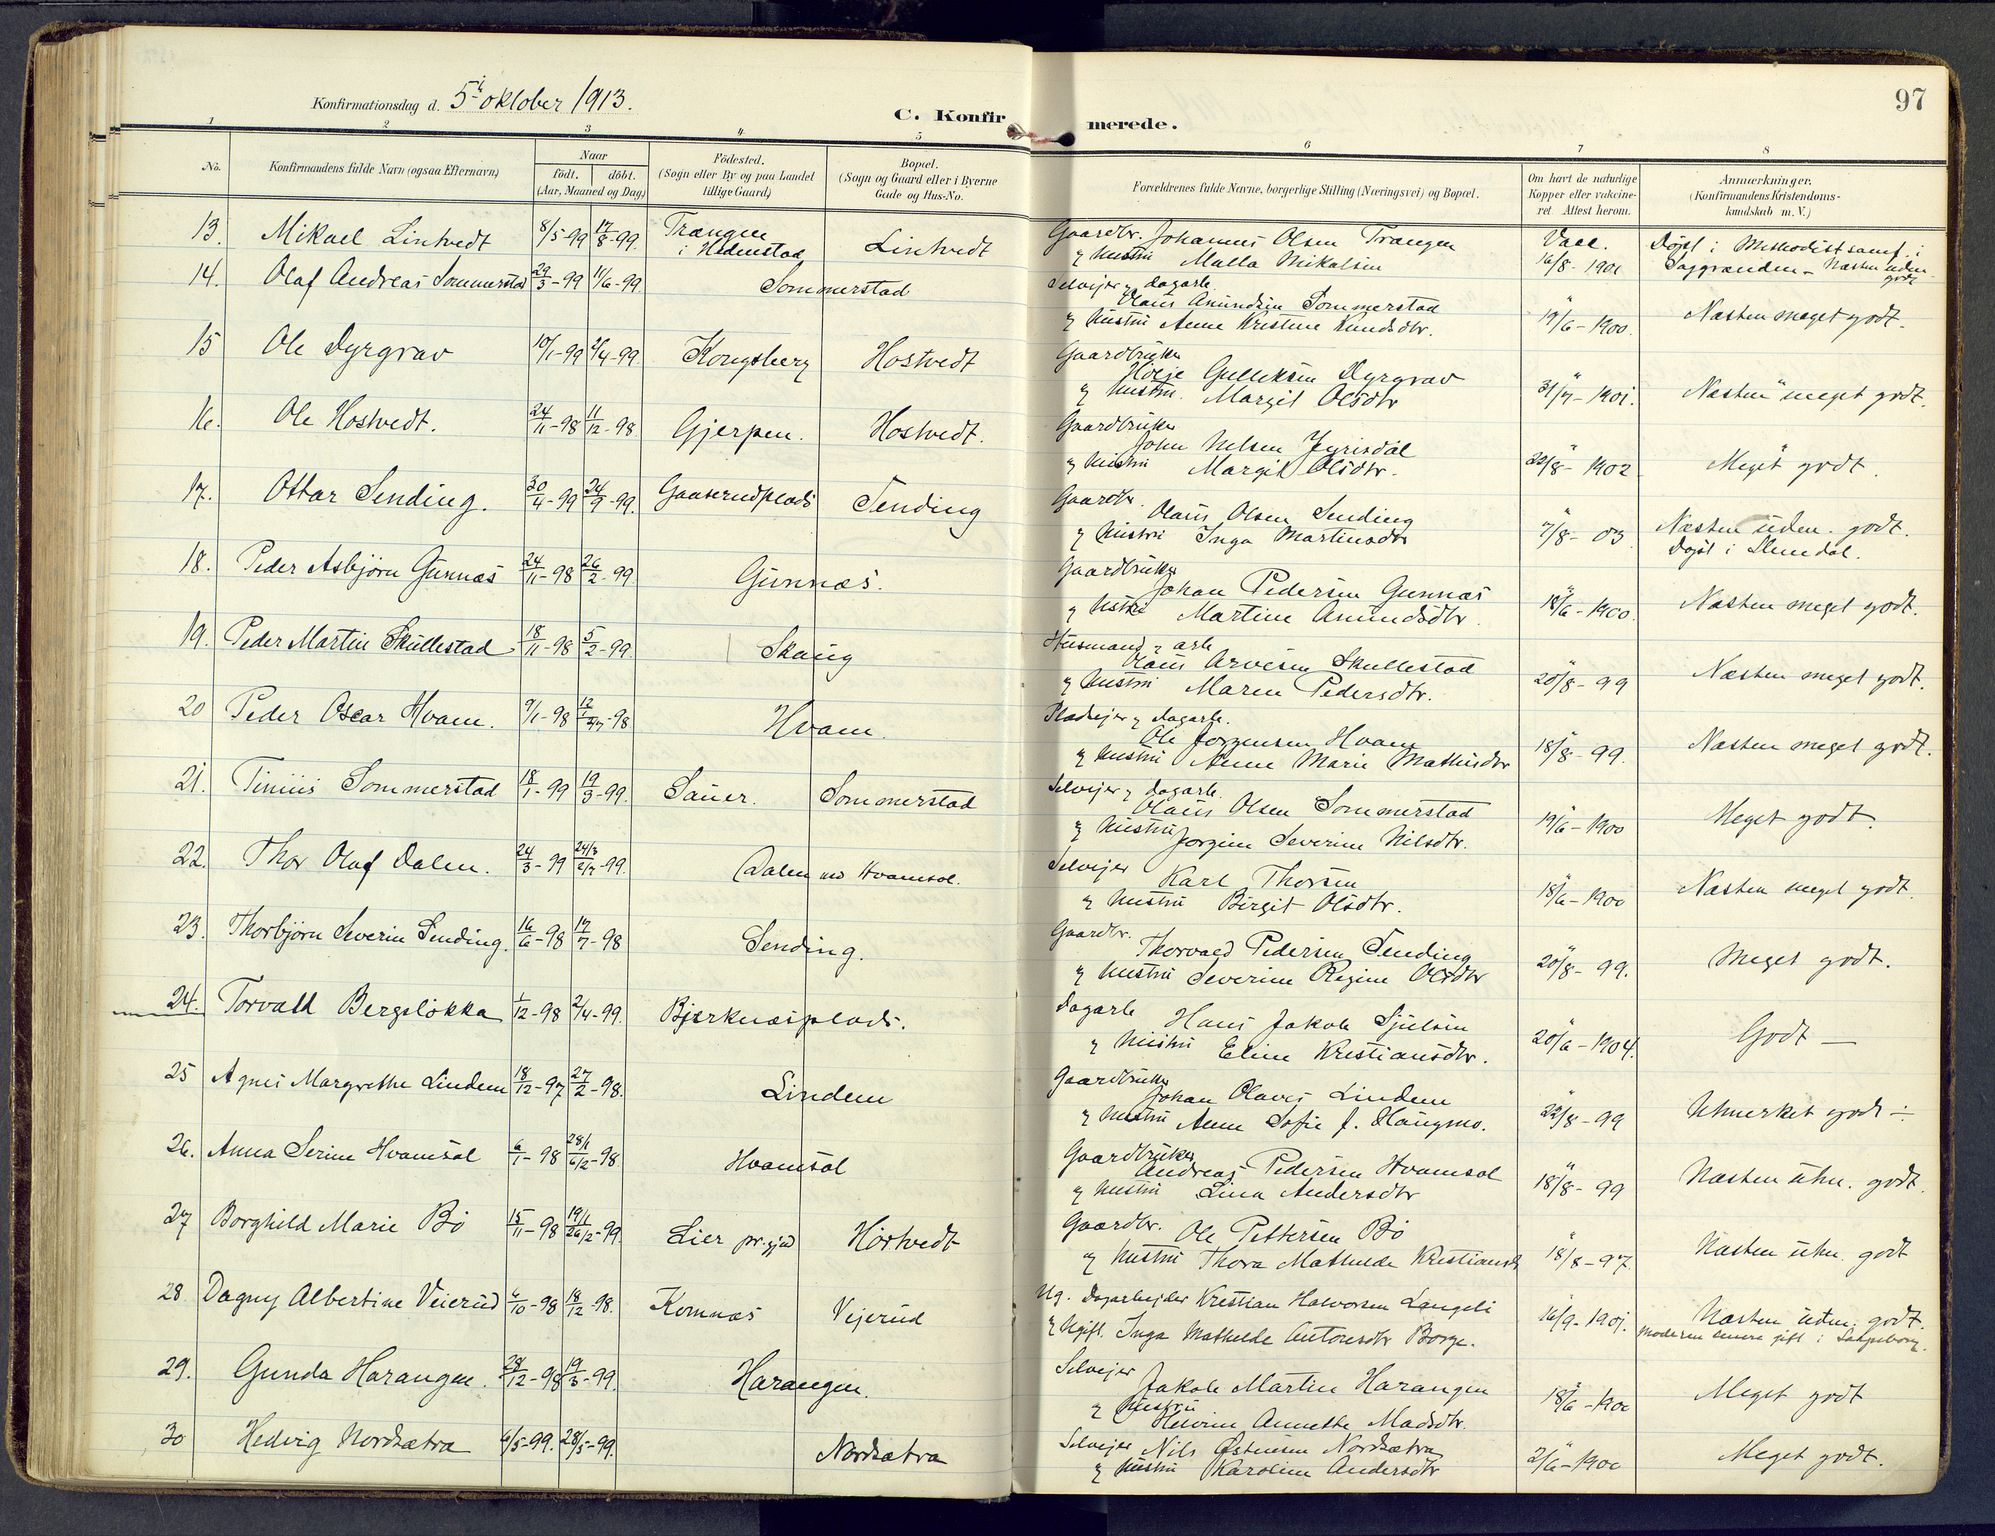 97
Konfirmationsdag d. 5te oktober 1913.
C. Konfirmerede.
1 2 3 4 5 6 7 8
No. Konfirmandens fulde Navn (ogsaa Efternavn) Naar født. døbt. (Aar, Maaned og Dag) Fødested. (Sogn eller By og paa Landet tillige Gaard) Bopæl. (Sogn og Gaard eller i Byerne Gade og Hus-No. Forældrenes fulde Navne, borgerlige Stilling (Næringsvei) og Bopæl. Om havt de naturlige Kopper eller vakcineret. Attest herom. Anmærkninger. (Konfirmandens Kristendomskundskab m. V.)
13. Mikael Lintvedt 8/5-99 17/8-99. Trangen i Hedenstad Lintvedt Gaardbr. Johannes Olsen Trangen Vacc. Døpt i Methodistsamf. i
y hustru Malla Mikalsen 16/8-1901 Saggrenden - Næsten uden godt
14. Olaf Andreas Sommerstad 29/3-99 11/6-99. Sommerstad Selvejer y dagarb.
Olaus Amundsen Sommerstad
y hustru Anne Kristine Knudsdtr. 19/6-1900. Næsten meget godt.
15 Ole Dyrgrav 10/1-99 2/4-99. Kongsberg Hostvedt Gaardbruker
Høije Gulliksen Dyrgrav
y hustru. Margit Olsdtr 31/7-1901. Næsten meget godt.
16. Ole Hostvedt. 24/11-98 11/12-98 Gjerpen. Hostvedt. Gaardbruker
John Nilsen Fyrisdal
y hustru Margit Olsdtr. 22/8-1902 Meget godt.
17. Ottar Sending. 30/4-99 24/9-99. Gaaserudplads Sending Gaardbr.
Olaus Olsen Sending
y hustru Inga Martinsdtr 7/8-03 Næsten uden. godt. Døpt i Slemdal.
18. Peder Asbjørn Gunnæs 24/11-98 26/2-99. Gunnæs. Gaardbruker
Johan Pedersen Gunnæs
y hustru Martine Amundsdtr. 18/6-1900 Næsten meget godt.
19. Peder Martin Skullestad 18/11-98 5/2-99. Skaug Husmand y arb.
Olaus Arvesen Skullestad
y hustru Maren Pedersdtr. 20/8-99 Næsten meget godt.
20 Peder Oscar Hvam. 9/1-98 Hvam. Pladsejer y dagarb.
Ole Jørgensen Hvam
y hustru Anne Marie Mathisdtr 18/8-99. Næsten meget godt.
21. Tinius Sommerstad 18/1-99 19/3-99. Sauer. Sommerstad Selvejer y dagarb.
Olaus Olsen Sommerstad
y hustru Jorgine Severine Nilsdtr. 19/6-1900 Meget godt.
22. Thor Olaf Dalen. 24/3-99 Dalen ved Hvamsal. Selvejer
Karl Thorsen
y hustru Birgit Olsdtr. 18/6-1900 Næsten meget godt.
23. Thorbjørn Severin Sending. 16/6-98 17/7-98 Sending. Gaardbr.
Thorvald Pedersen Sending
y hustru Severine Regine Olsdtr 20/8-99. Meget godt.
24. Torvald Bergsløkka 1/12-98 2/4-99. Bjerknæsplads. Dagarb
Hans Jakob Sjulsen
y hustru Eline Kristiansdtr. 20/6-1904. Godt —
25 Agnes Margrethe Lindem 18/12-97 27/2-98. Lindem Gaardbruker
Johan Olaves Lindem
y hustru Anne Sofie J. Haugmo. 22/8-99 Utmerket godt -
26. Anna Serine Hvamsal 6/1-98 28/1 6/2-98. Hvamsal Gaardbruker
Andreas Pedersen Hvamsal
y hustru Lina Andersdtr 18/8-99 Næsten utm. godt.
27 Borghild Marie Bø 15/11-98 19/1 26/2-99. Lier pr.gjld Hørtvedt Gaardbr. Ole Pettersen Bø
y hustru Thora Mathilde Kristiansd 18/8-97. Næsten utm. godt
28. Dagny Albertine Veierud 4/10-98 18/12-98. Komnæs Vejerud Ug. Dagarbejder Kristian Halvorsen Langeli
y Ugift. Inga Mathilde Antonsdtr Borge. 16/9-1901. Næsten uden. godt.
moderen senere gift i Sarpsborg.
29. Gunda Harangen. 28/12-98 19/3-99. Harangen. Selvejer Jakob Martin Harangen
y hustru Helvine Annette Madsdtr. 18/6-1900 Meget godt
30 Hedvig Nordsætra 6/5-99. 28/5-99. Nordsætra Selvejer Nils Østensen Nordsætra
y hustru Karoline Andersdtr 2/6-1900 Meget godt.